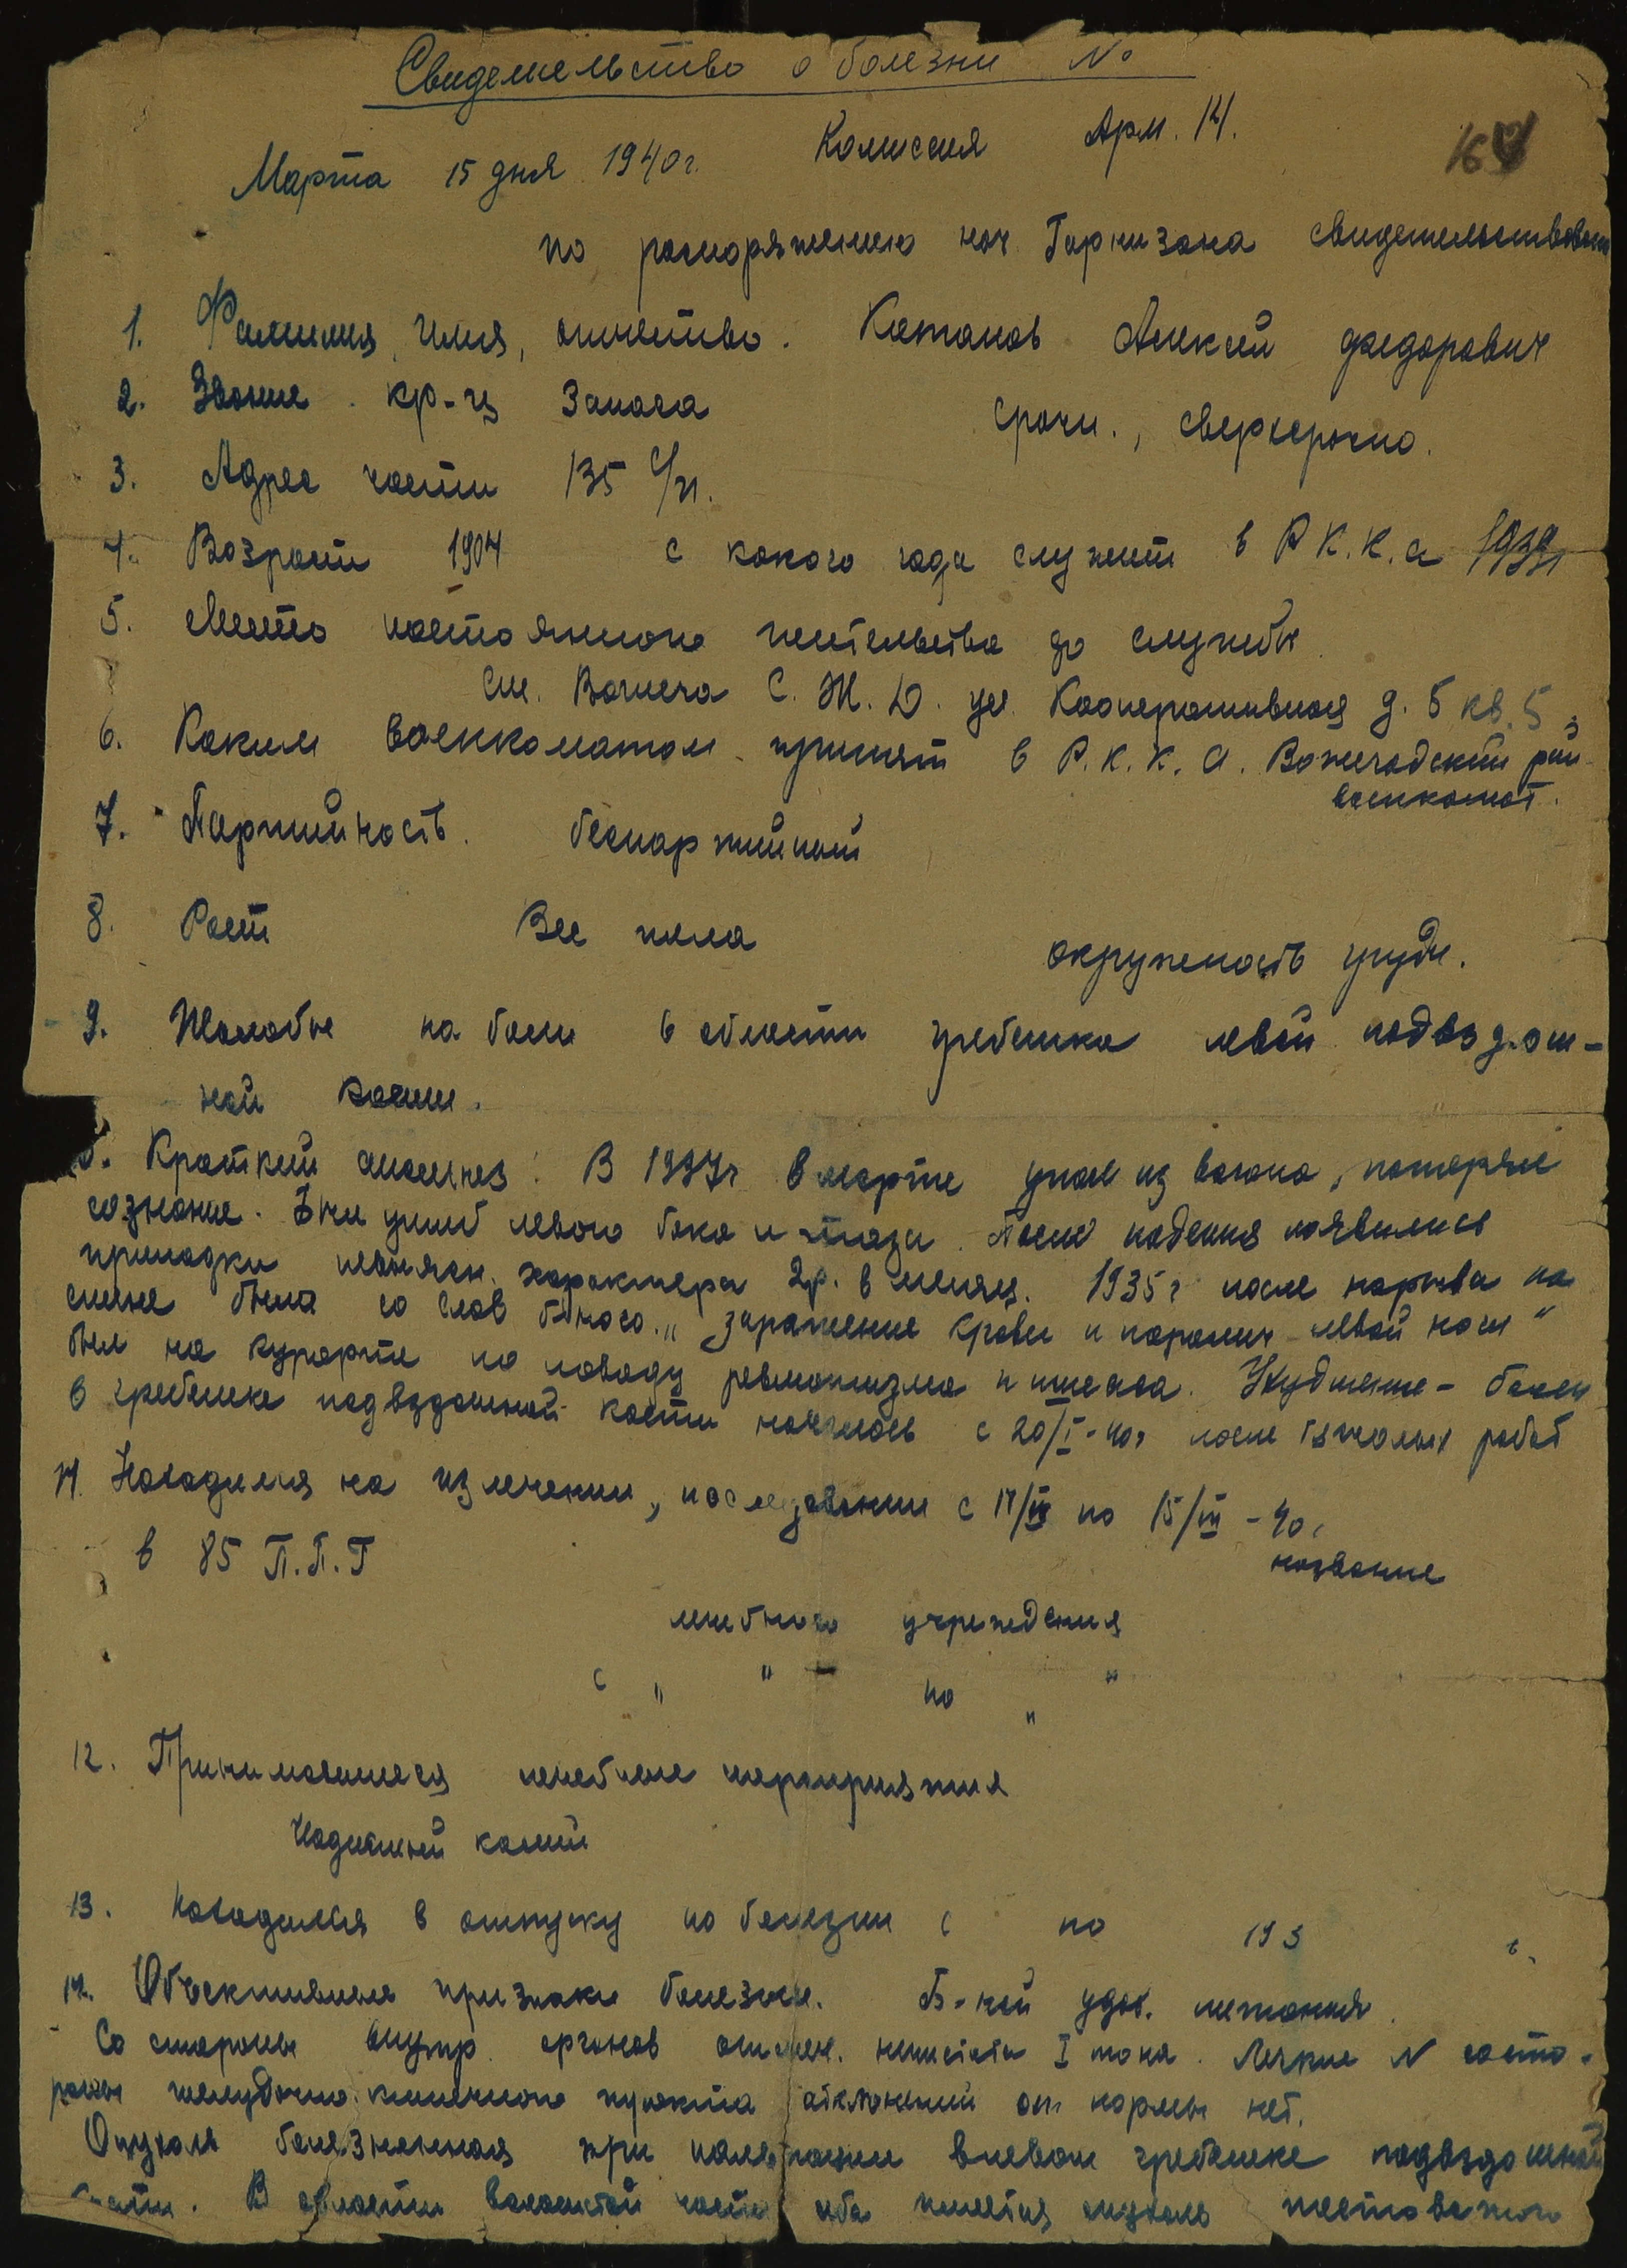 Свидетельство о болезни №
Марта 15 дня 1940 г. Комиссия Арм. 14.
по распоряжению нач. Гарнизона свидетельствовал
1. Фамилия, имя, отчество. Катаков Алексей Федорович
2. Звание. кр-ц запаса срочн., сверхсрочно.
3. Адрес части 135 с/п.
4. Возраст 1904 с какого года служит в Р.К.К.А 1939
5. Место постоянного жительства до службы
ст. Вожега С.Ж.Д. ул. Кооперативная д. 5 кв. 5
6. Каким военкоматом принят в Р.К.К.А. Вожегодский рай
военкомат.
7. Партийность. беспартийный
8. Рост Вес тела окружность груди.
9. Жалобы на боли в области гребешка левой подвздош-
ной кости.
Краткий анамнез: В 1937 г в марте упал из вагона, потерял
сознание. Был ушиб левого бока и таза. После падения появились
припадки характера 2 р. в месяц. 1935 г после нарыва на
спине было со слов больного „заражение крови и паралич левой ноги“
был на курорте по поводу ревматизма и ишиаса. Ухудшение - боли
в гребешке подвздошной кости начались с 20/I-40 г после тяжелых работ
11. Находился на излечении, исследовании с по 15/III - 40 г
в 85 П.П.Г название
лечебного учреждения
с " " по " "
12. Принимавшиеся лечебные мероприятия
Иодистый калий
13. Находился в отпуску по болезни с по 193 г.
14. Объективные признаки болезни. Б-ной удов. питания.
Со стороны внутр. органов отмеч. нечистота I тона. Легкие N со сто-
роны желудочно кишечного тракта отклонений от нормы нет.
Опухоль болезненная при пальпации в левом гребешке подвздошной
кости. В области волосистой части лба имеется опухоль